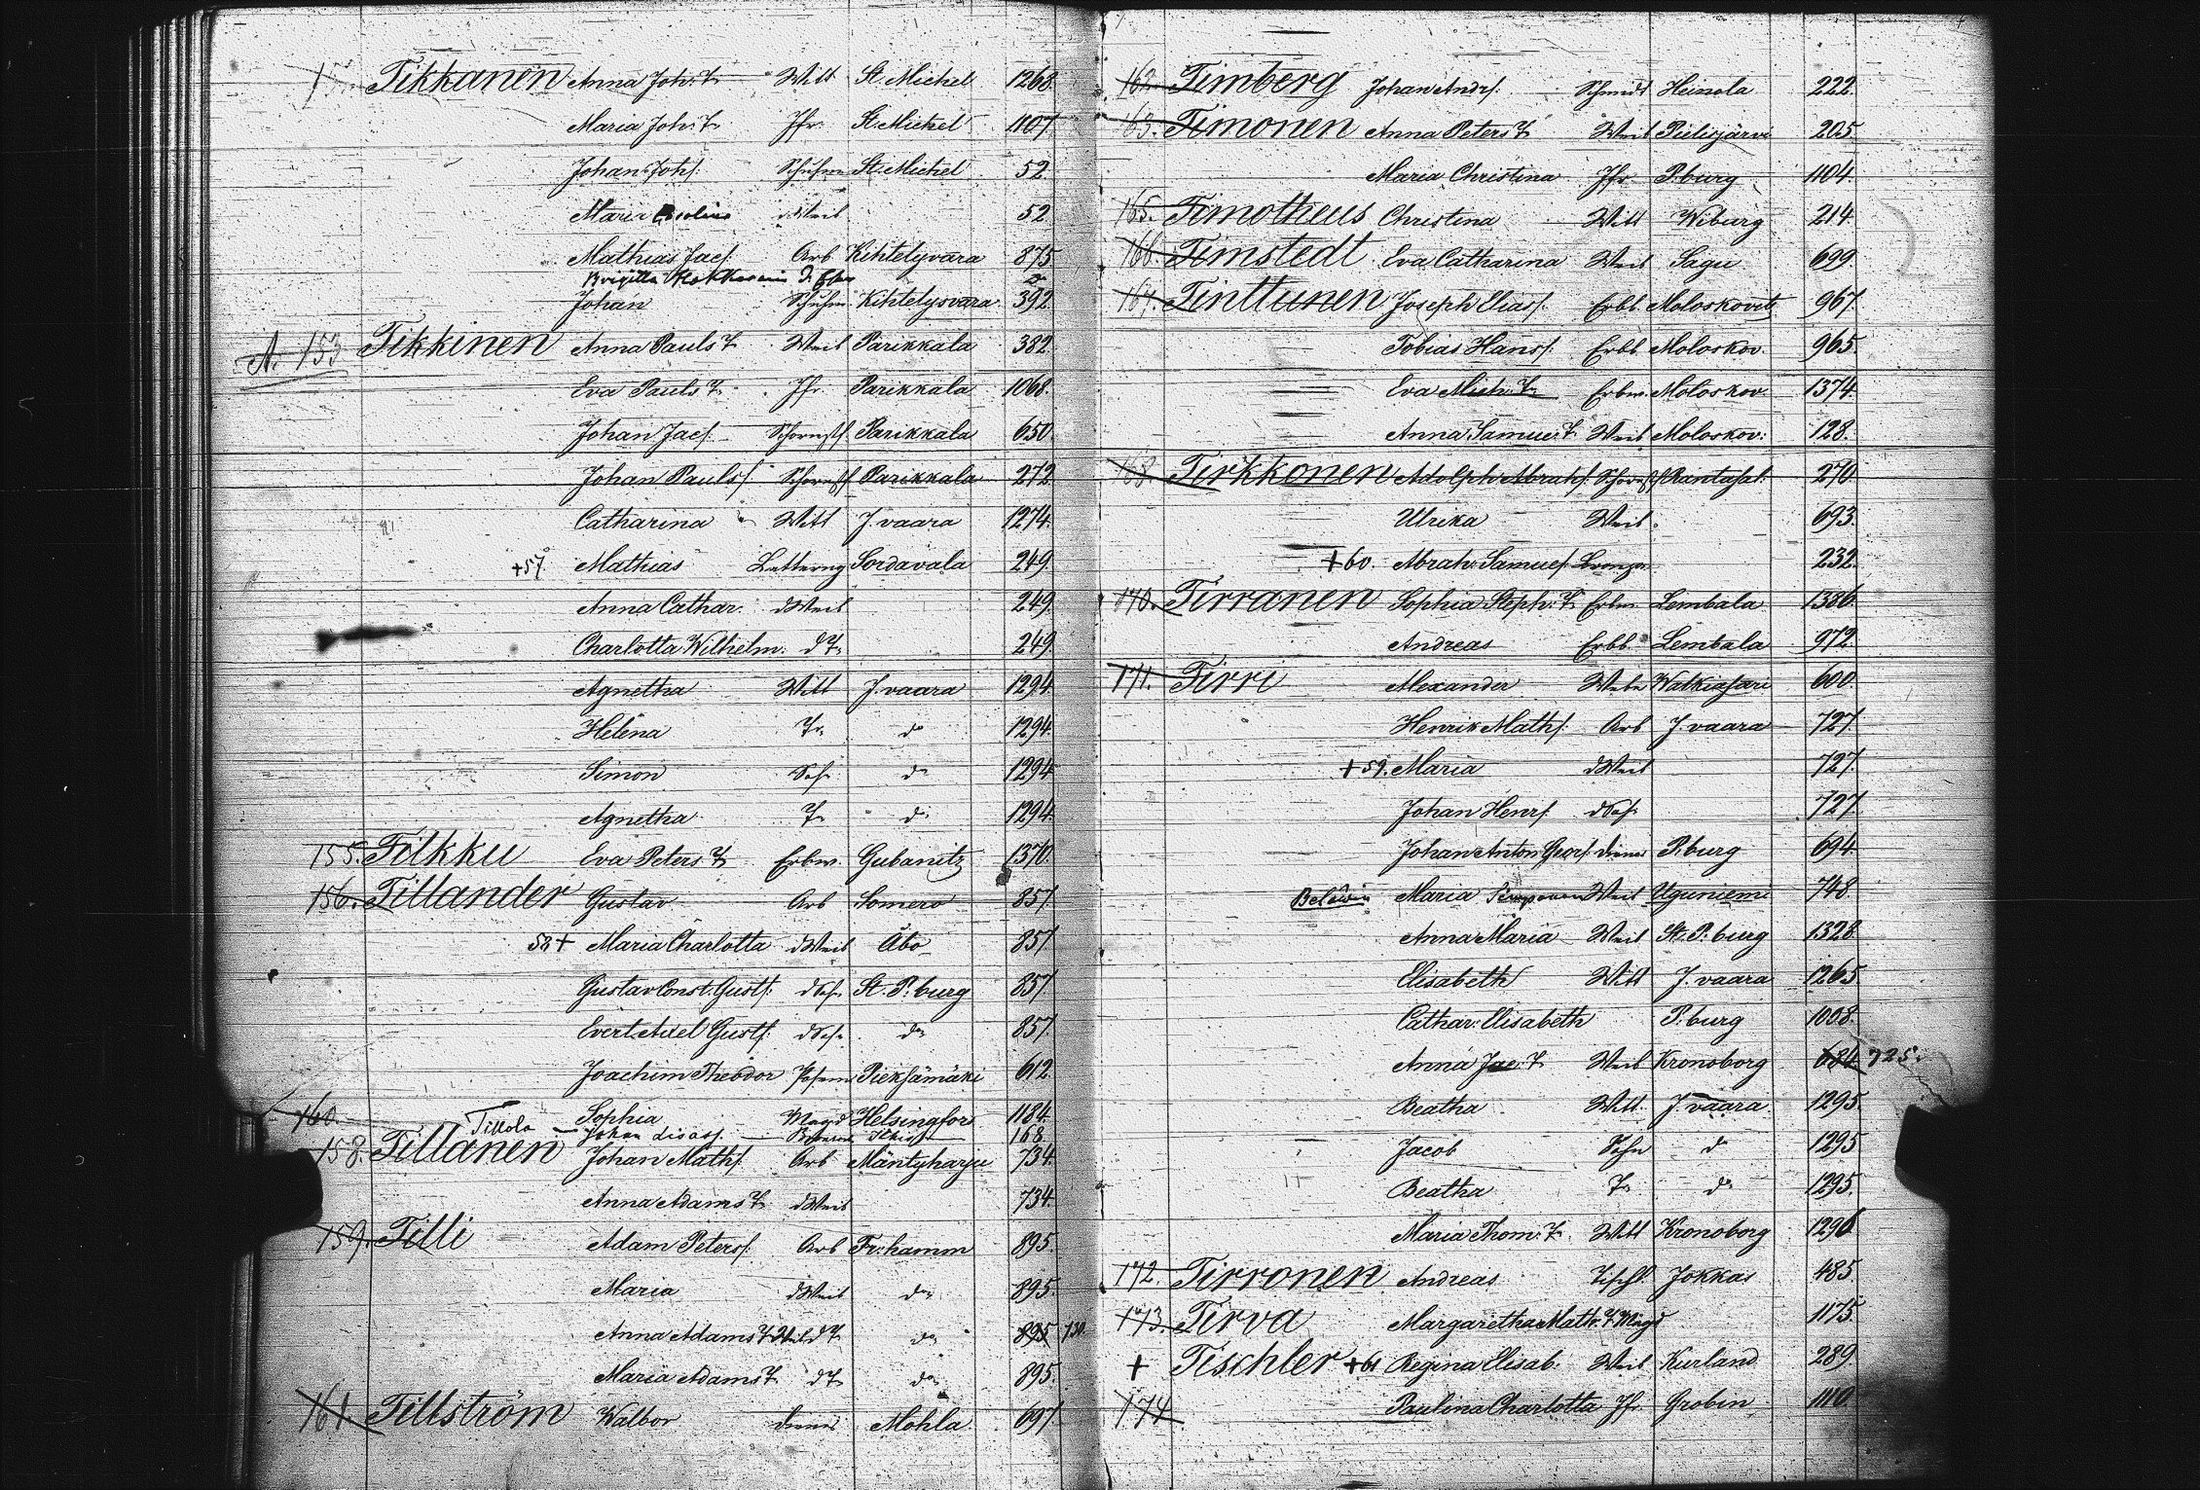 Tikkanen Anna Joh: T. Witt St. Michel 1268.
Maria Joh: T. Jfr. St. Michel 1107.
Johan Johs. Schuhm St. Michel 52.
Maria dWeib 52.
Mathias Jacs. Arb Kihtelyvara 875
Brigitta
Johan Schuhm. Kihtelysvara 392.
A. 153 Tikkinen Anna Pauls T. Weib Parikkala 382.
Eva Pauls T. Jfr. Parikkala 1068.
Johan Jacs. Schornstf Parikkala 650.
Johan Pauls. Schornstf Parikkala 272
Catharina Witt J. vaara 1274.
+57. Mathias Sordavala 249.
Anna Cathar. dWeib 249.
Charlotta Wilhelm. dT. 249.
Agnetha Witt J. vaara 1294.
Helena Tr. do 1294.
Simon Sohn do 1294
Agnetha Tr. do 1294.
155. Tilkku Eva Peters T. Erbw. Gubanitz 1370.
156. Tillander Gustav Arb Somero 857.
58+ Maria Charlotta dWeib Åbo 857.
Gustav Const. Gusts. dSoh. St. P: burg 857
Evert Axel Gusts. dSoh. do 857.
Joachim Theodor Pieksämäki 612.
160. Sophia Magd Helsingfor 1184.
Tillola Johan 168.
158. Tillanen Johan Maths. Arb Mäntyharju 734.
Anna Adams T. dWeib 734.
159. Tilli Adam Peters. Arb Fr: hamm 895.
Maria dWeib do 895.
Anna Adams T. dT. do 895 730.
Maria Adams T. dT. do 895.
161. Tillström Walbor diener Mohla 697
162. Timberg Johan Andrs. Schmidt Heinola 222.
163. Timonen Anna Peters T. Weib Pielisjärvi 205.
Maria Christina Jfr. P.burg 1104.
165. Timotheus Christina Witt Wiburg 214.
166. Timstedt Eva Catharina Weib Sagu 699.
167. Tinttunen Joseph Elias. Erbb. Moloskovitz 967.
Tobias Hans. Erbb Moloskov. 965.
Eva Mich: T. Erbw. Moloskov. 1374.
Anna Samue: T. Weib Moloskov: 128.
168. Tirkkonen Adolph Abrahs. Schornstf Rantasal: 270
Ulrika Weib. 693.
+60. Abrah: Samuels. 232.
170. Tirranen Sophia Steph: T. Erbw. Lembala 1386.
Andreas Erbb. Lembala 972.
171. Tirri Alexander Walkiasari 600
Henrik Maths. Arb J. vaara 727.
+59. Maria dWeib 727.
Johan Henrs. dSoh. 727.
Johan Anton Geors. diener P.burg 694.
Maria Weib Uguniemi 748.
Anna Maria Weib St. P: burg 1328.
Elisabeth Witt J. vaara 1265
Cathar: Elisabeth P: burg 1008.
Anna Jac: T. Weib Kronoborg 684 725.
Beatha Witt. J. vaara. 1295.
Jacob Sohn do 1295
Beatha Tr. do 1295.
Maria Thom: T. Witt Kronoborg 1296
172. Tirronen Andreas Tischl. Jokkas 485.
173. Tirva Margaretha Math: T. Magd 1175.
+ Tischler +61 Regina Elisab: Weib Kurland 289.
174 Paulina Charlotta Jfr. Grobin 1110.